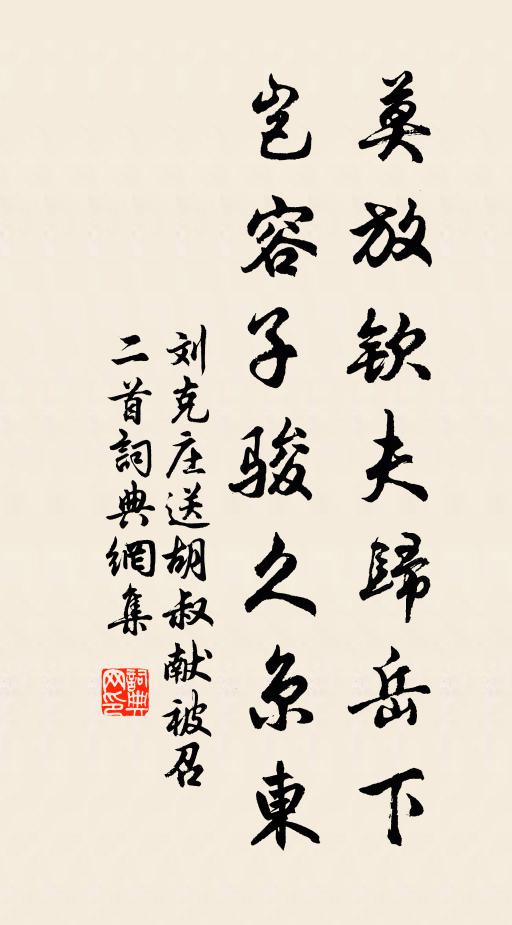 莫放钦夫歸岳下
岂容子骏久京東
刘克庄送胡叔献被召
二首詞典網集
詞典
网印